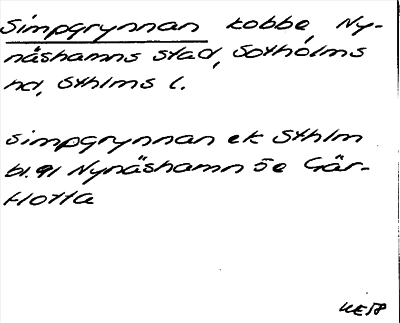 Simpgrynnan kobbe, Ny-
näshamns stad, Sotholms
hd, Sthlms l.
simpgrynnan ek Sthlm
bl. 91 Nynäshamn 5e Går-
flotta